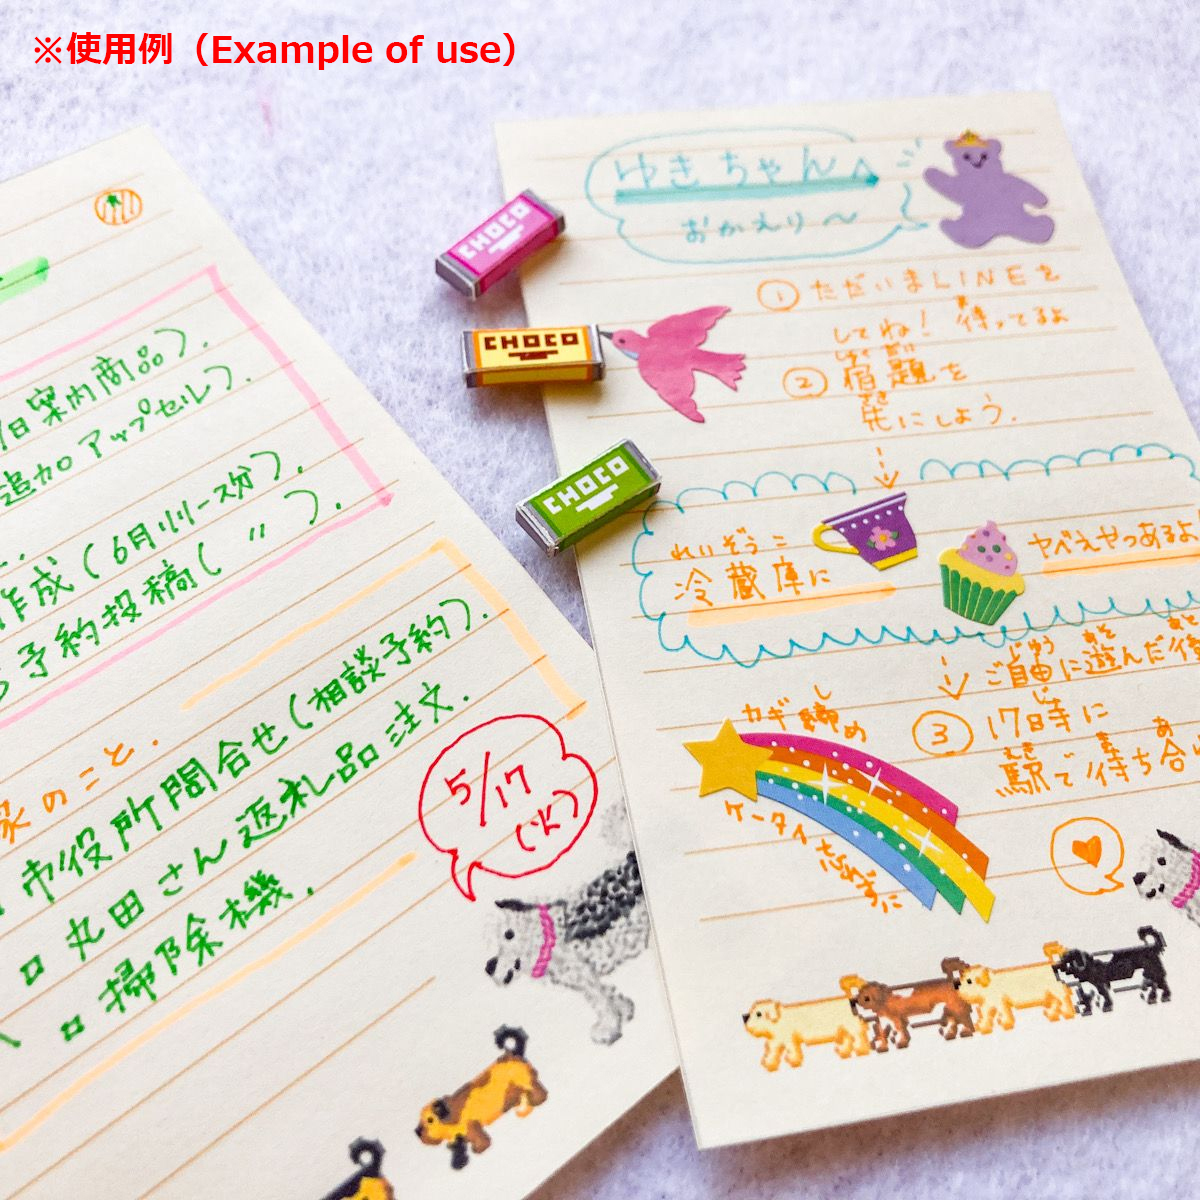 ※使用例（Example of use）
日案内商品）.
追加アップセル）.
作成（6月リリース分）.
予約投稿（ 〃 ）.
家のこと.
市役所問合せ（相談予約）.
丸田さん返礼品注文.
掃除機.
5/17
（火）
CHOCO
CHOCO
CHOCO
ゆきちゃんへ
おかえり〜
① ただいまLINEを
してね！待ってるよ
② 宿題を
先にしよう.
れいぞうこ
冷蔵庫に
ヤベえやつあるよ
ご自由に遊んだ後
③ 17時に
駅で待ち合
カギ締め
ケータイ